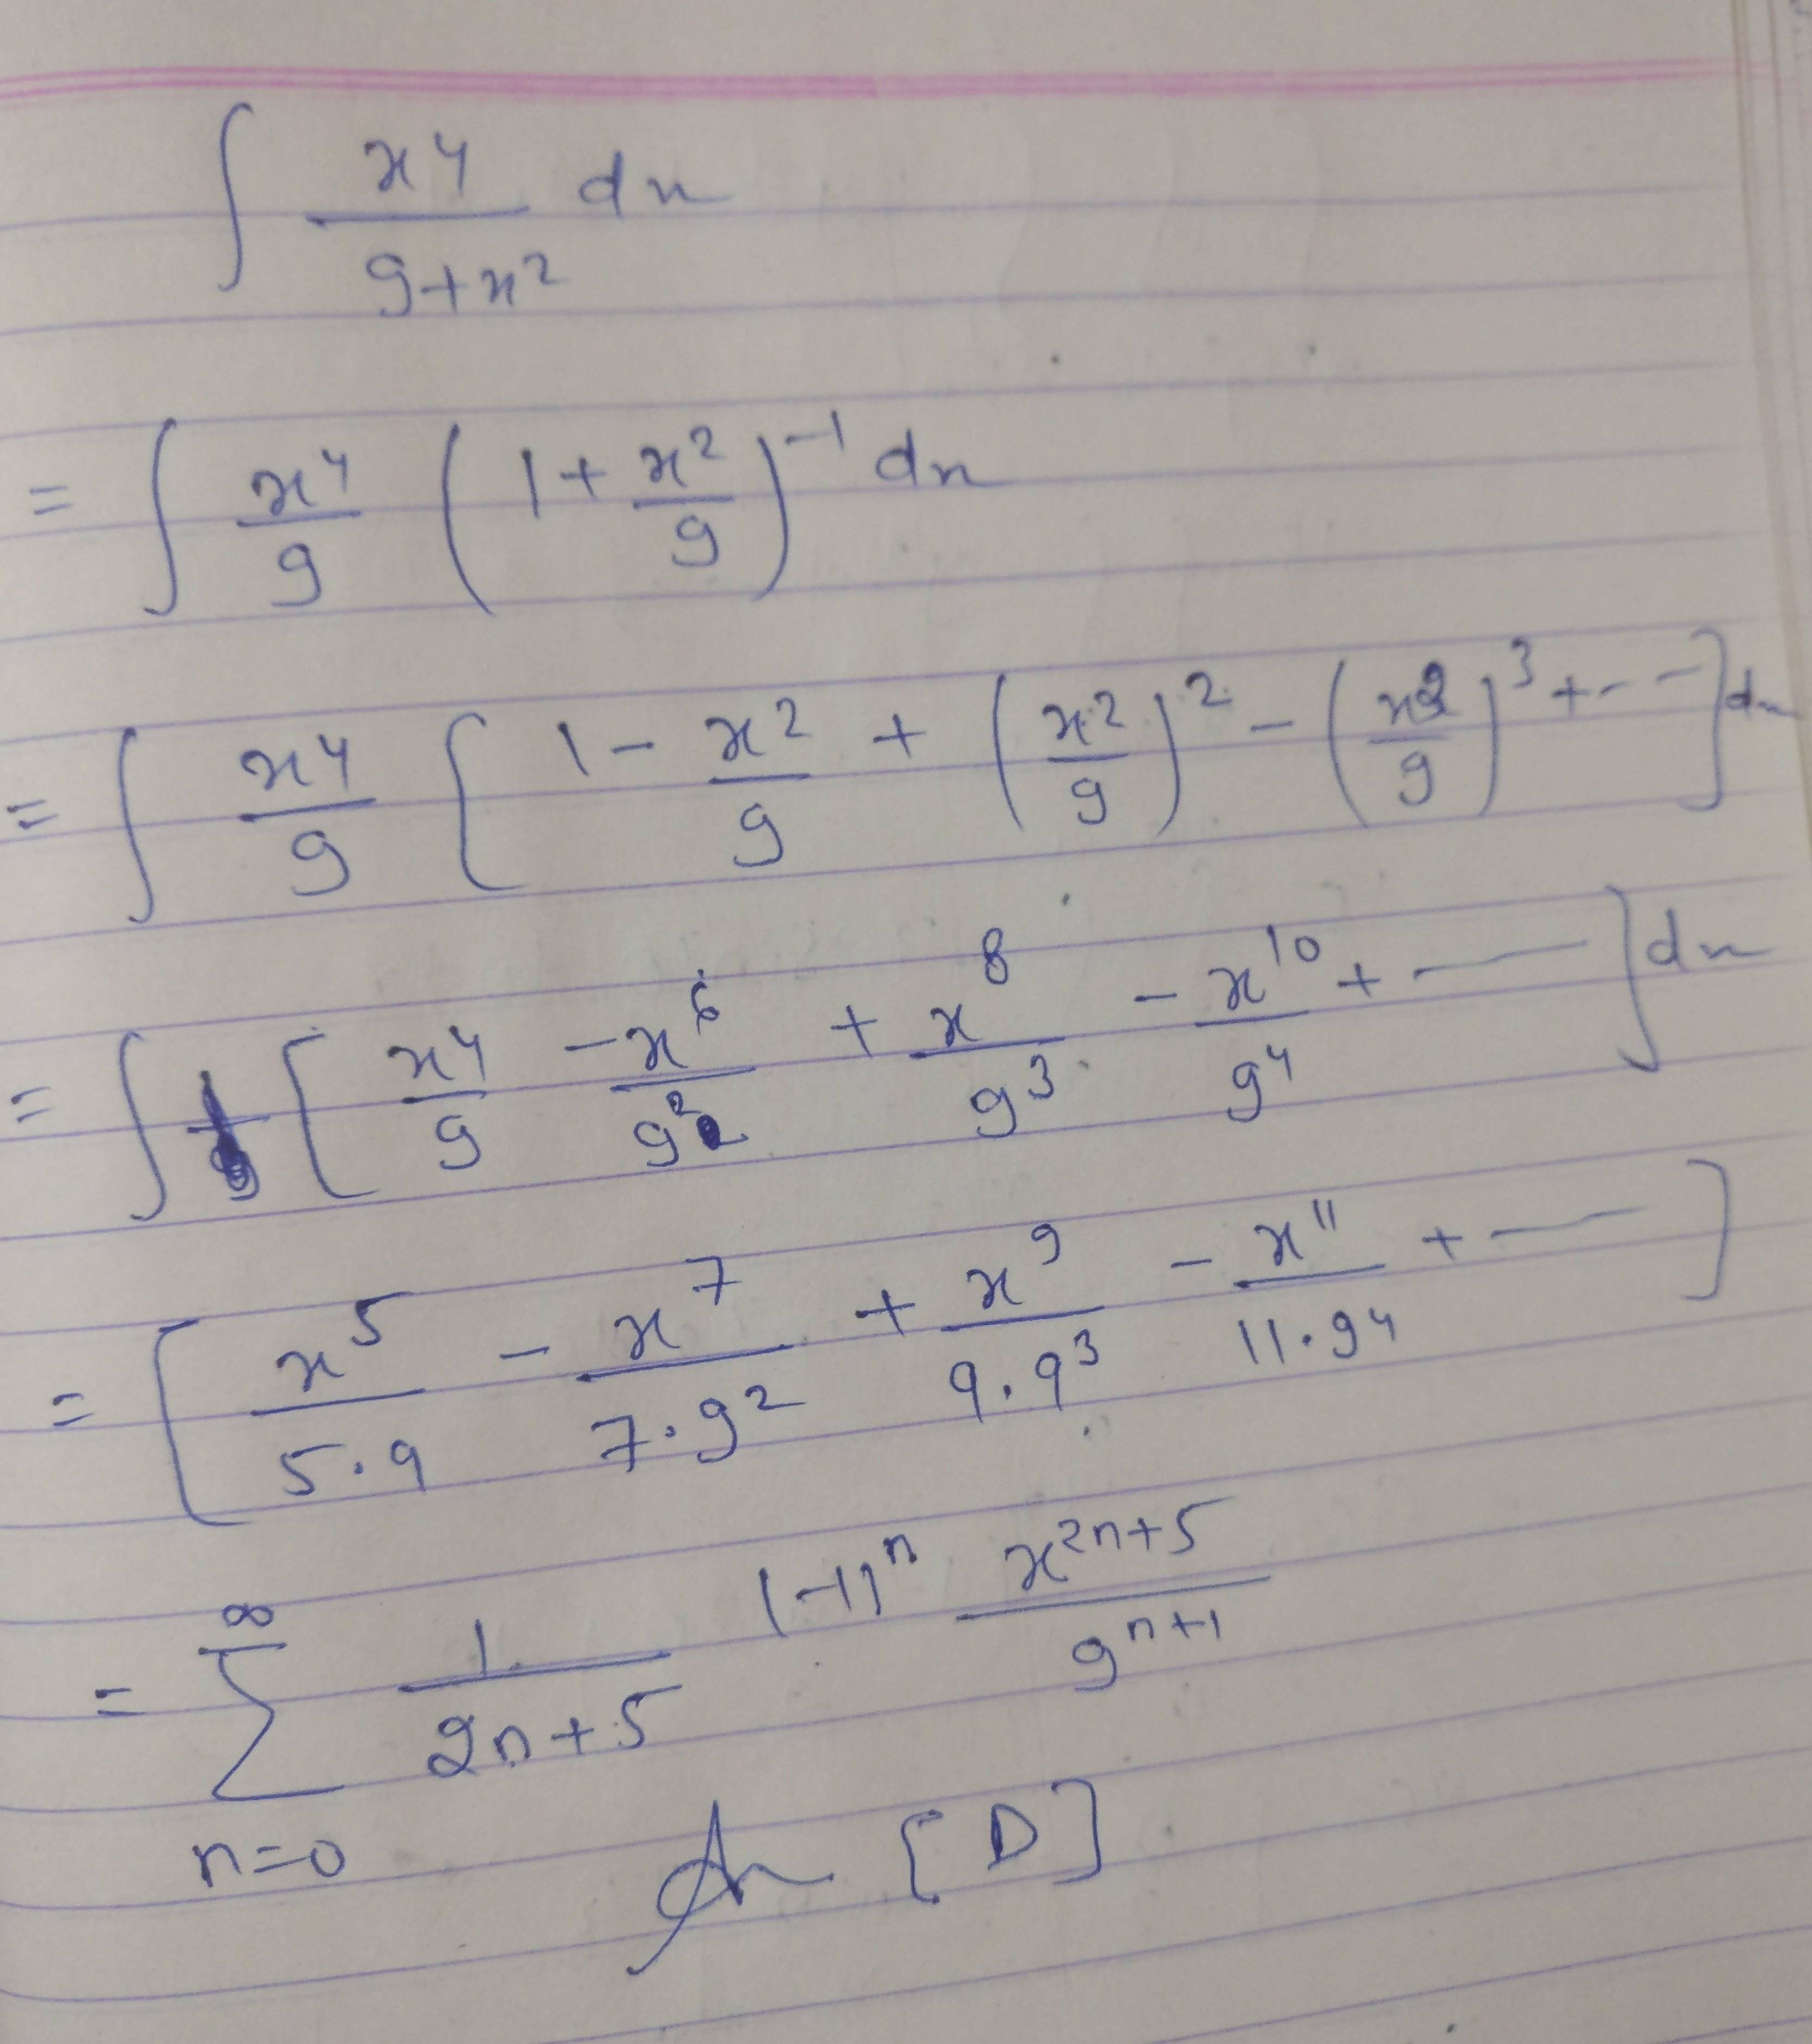 ∫ x⁴/(9+x²) dx
= ∫ x⁴/9 (1 + x²/9)⁻¹ dx
= ∫ x⁴/9 [1 - x²/9 + (x²/9)² - (x²/9)³ + - - -] dx
= ∫ [x⁴/9 - x⁶/9² + x⁸/9³ - x¹⁰/9⁴ + ——] dx
= [x⁵/(5·9) - x⁷/(7·9²) + x⁹/(9·9³) - x¹¹/(11·9⁴) + ——]
= ∞ ∑ n=0 1/(2n+5) (-1)ⁿ x²ⁿ⁺⁵/9ⁿ⁺¹
An [D]